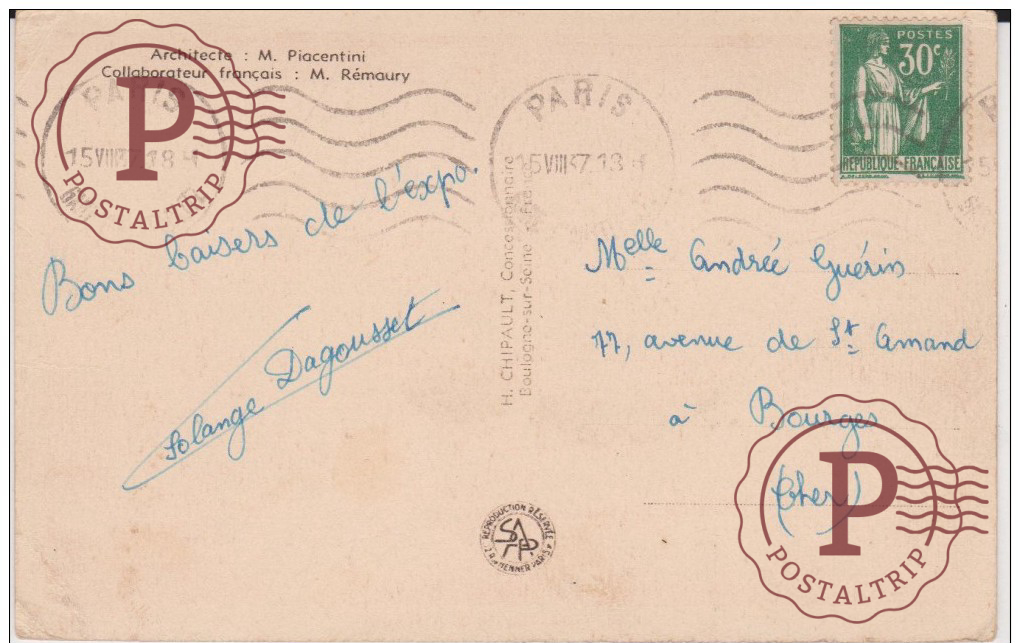 Architecte : M. Piacentini
Collaborateur français : M. Rémaury
P
POSTALTRIP
PARIS
15 VIII 37 18 H
Bons baisers de l'expo.
Solange Dagousset
H. CHIPAULT, Concessionnaire
Boulogne-sur-Seine - France
PARIS
15 VIII 37. 18 H
POSTES
30c
REPUBLIQUE-FRANÇAISE
Melle Andrée Guérin
77, avenue de St Amand
à Bourges
(Cher)
REPRODUCTION RÉSERVÉE
SAPP.
PARIS
P
POSTALTRIP